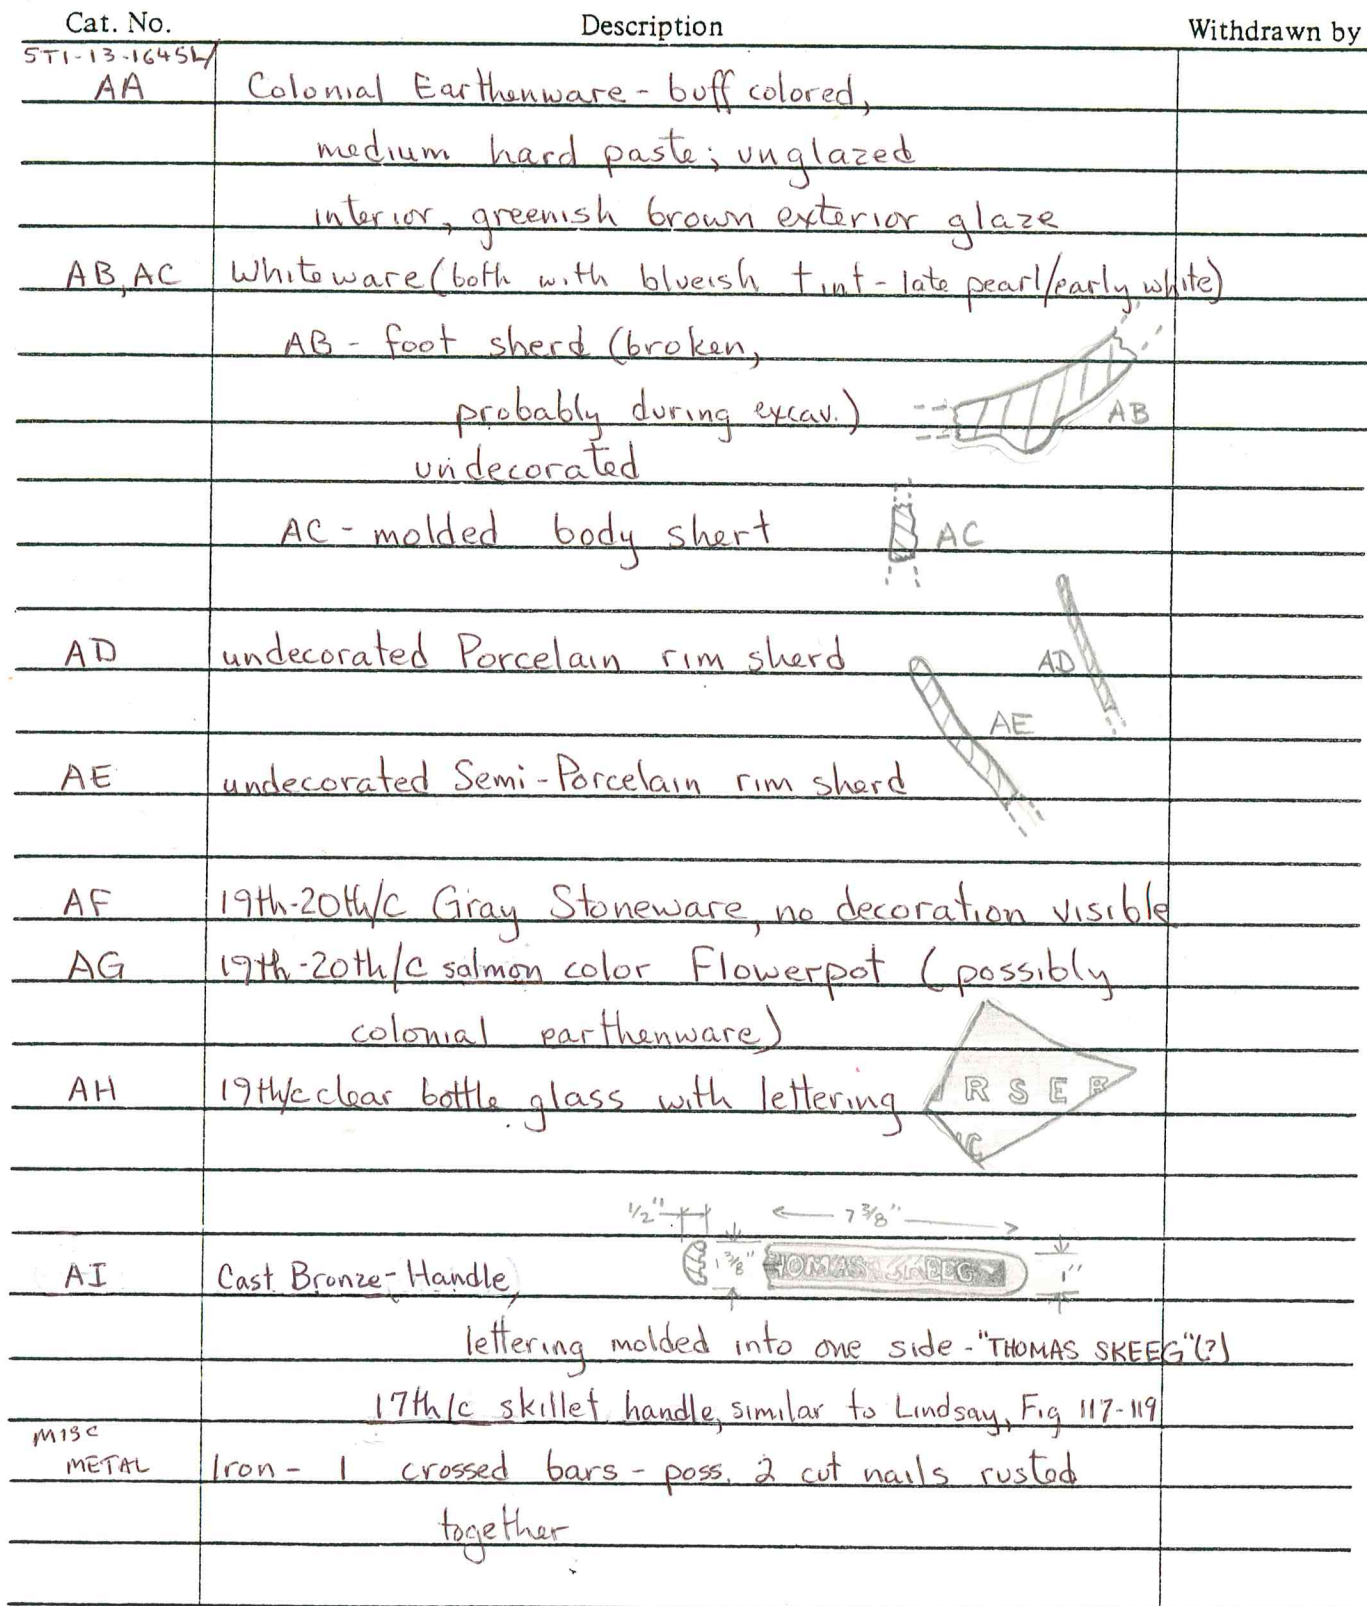 Cat. No. Description Withdrawn by
5T1-13-1645L/
AA Colonial Earthenware - buff colored,
medium hard paste; unglazed
interior, greenish brown exterior glaze
AB, AC Whiteware (both with blueish tint - late pearl/early white)
AB - foot sherd (broken,
probably during excav.)
AB
undecorated
AC - molded body shert AC
AD undecorated Porcelain rim sherd AD
AE
AE undecorated Semi-Porcelain rim sherd
AF 19th-20th/c Gray Stoneware, no decoration visible
AG 19th-20th/c salmon color Flowerpot (possibly
colonial earthenware)
AH 19th/c clear bottle glass with lettering R S E R
C
1/2" 7 3/8"
AI Cast Bronze-Handle, 1 3/8" HOMAS SKEEG 1"
lettering molded into one side - "THOMAS SKEEG"(?)
17th/c skillet handle, similar to Lindsay, Fig 117-119
MISC
METAL Iron - 1 crossed bars - poss. 2 cut nails rusted
together